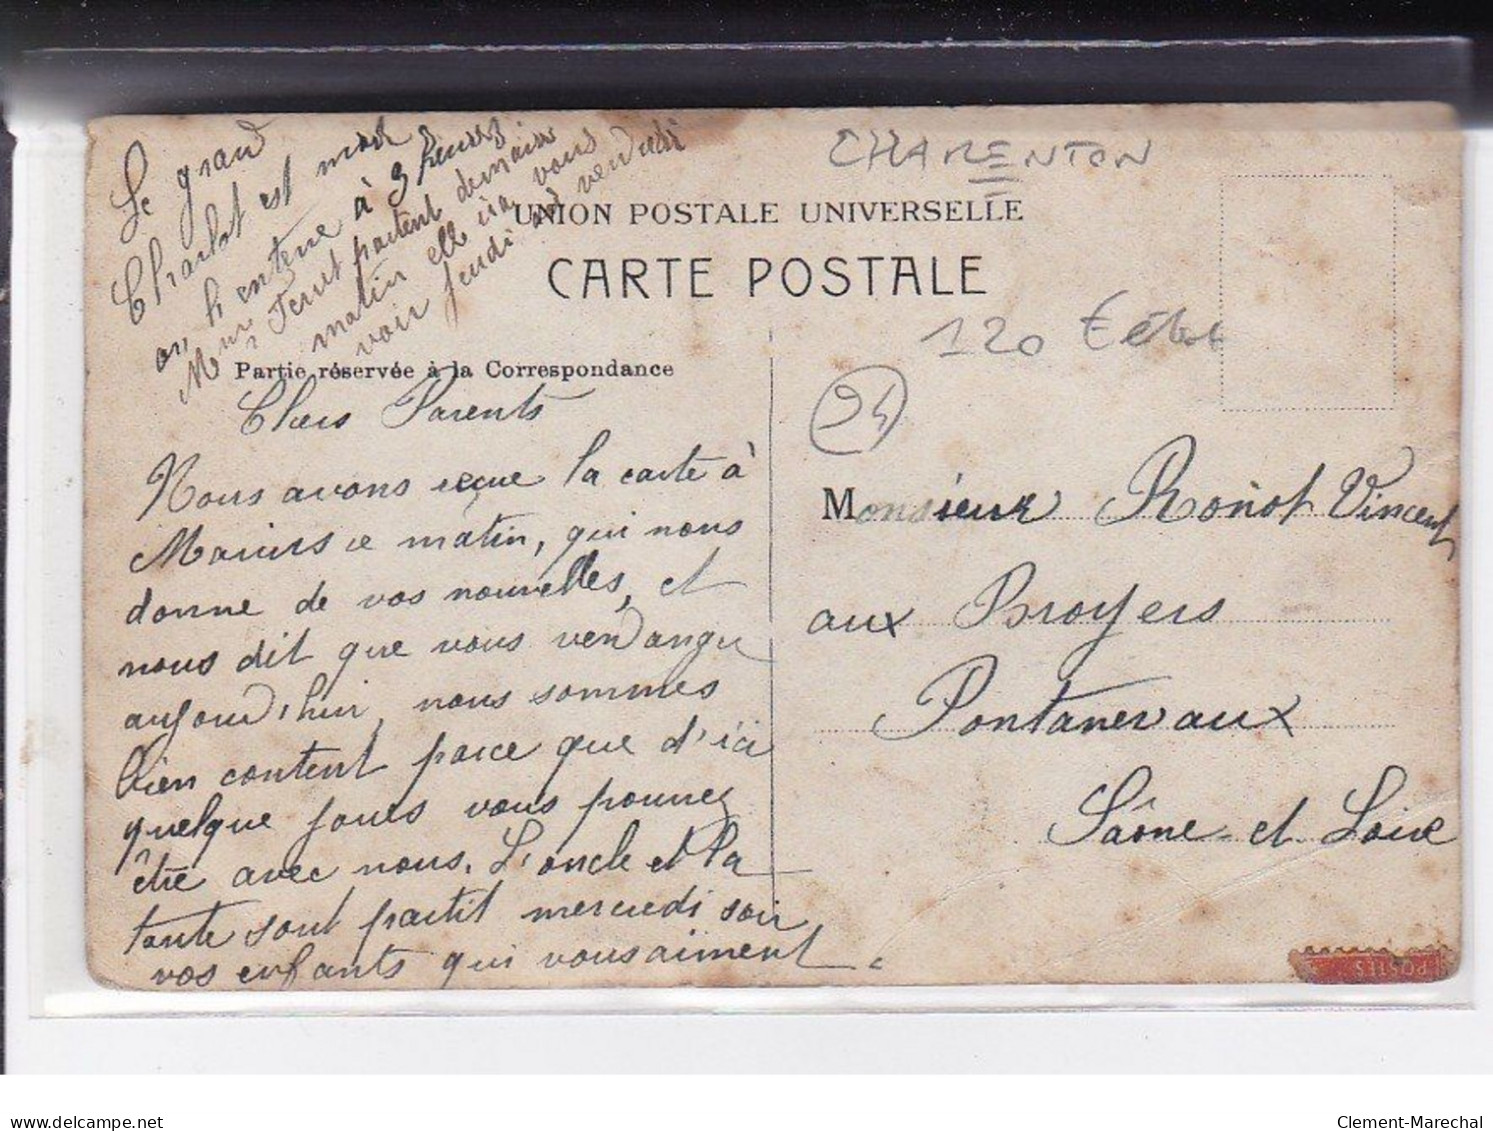 Le grand
Charlot est mort
on l'enterre à 3 heures
Mme Terret partent demain
matin elle ira vous
voir jeudi ou vendredi
CHARENTON
UNION POSTALE UNIVERSELLE
CARTE POSTALE
120 €
94
Partie réservée à la Correspondance
Chers Parents
Nous avons reçue la carte à
Marius ce matin, qui nous
donne de vos nouvelles, et
nous dit que vous vendangé
aujourd'hui, nous sommes
bien content parce que d'ici
quelque jours vous pourrez
être avec nous. L'oncle et la
tante sont partit mercredi soir
vos enfants qui vous aiment.
Monsieur Vincent
aux Broyers
Pontanevaux
Saône-et-Loire
POSTES
delcampe.net
Clement-Marechal